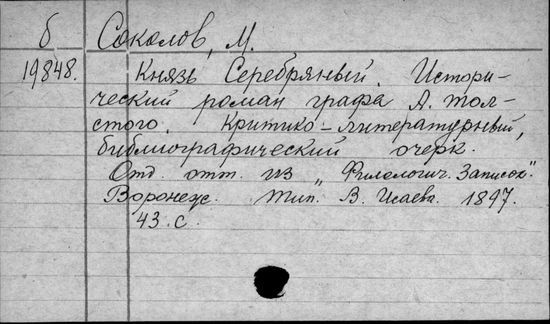 б Соколов, М.
19848. Князь Серебряный. Истори-
ческий роман графа А. Тол-
стого. Критико-литературный,
библиографический очерк.
Отд. отт. из „Филологич. Записок".
Воронеж. Тип. В. Исаева. 1897.
43. с.